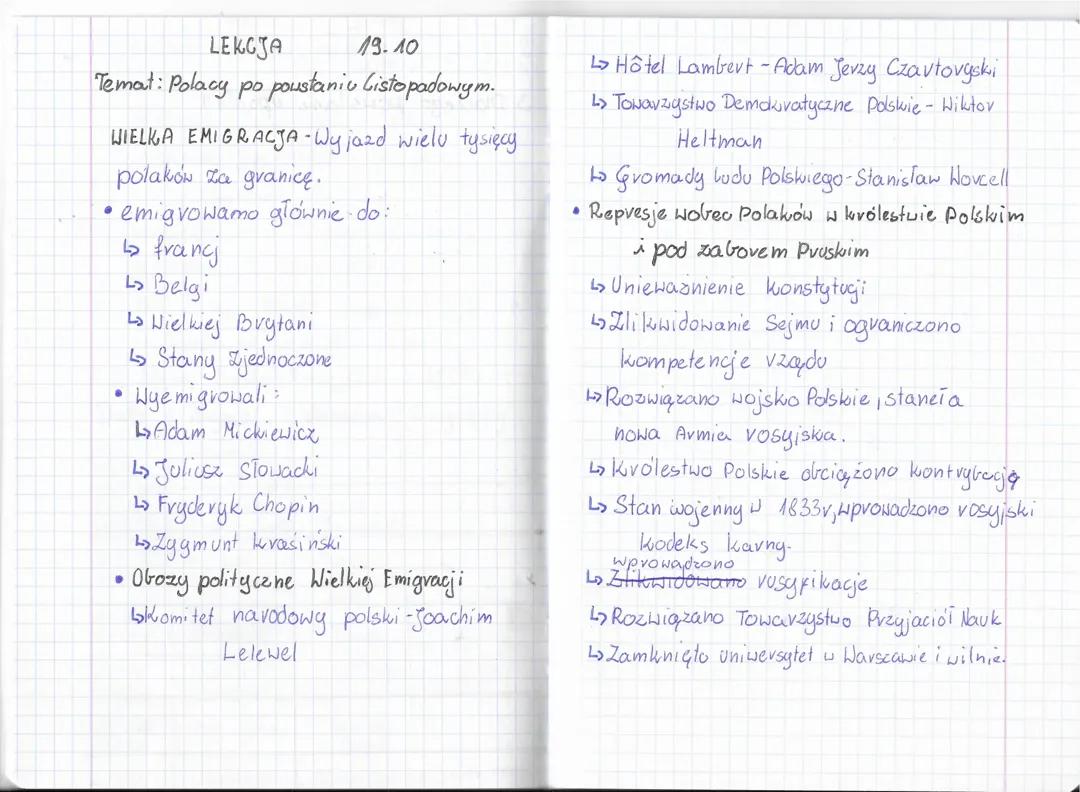 LEKCJA 19.10
Temat: Polacy po powstaniu Listopadowym.
WIELKA EMIGRACJA - Wyjazd wielu tysięcy
polaków za granicę.
• emigrowamo głównie do:
↳ francj
↳ Belgi
↳ Wielkiej Brytani
↳ Stany Zjednoczone
• Wyemigrowali:
↳ Adam Mickiewicz
↳ Juliusz Słowacki
↳ Fryderyk Chopin
↳ Zygmunt krasiński
• Obozy polityczne Wielkiej Emigracji
↳ komitet narodowy polski - Joachim
Lelewel
↳ Hôtel Lambert - Adam Jerzy Czartoryski
↳ Towarzystwo Demokratyczne Polskie - Wiktor
Heltman
↳ Gromady ludu Polskiego - Stanisław Worcell
• Represje wobec Polaków w królestwie Polskim
i pod zaborem Pruskim
↳ Unieważnienie konstytucji
↳ Zlikwidowanie Sejmu i ograniczono
kompetencje rządu
↳ Rozwiązano wojsko Polskie, staneła
nowa Armia rosyjska.
↳ Królestwo Polskie obciążono kontrybucją
↳ Stan wojenny w 1833r, wprowadzono rosyjski
kodeks karny.
wprowadzono
↳ Zlikwidowano rusyfikacje
↳ Rozwiązano Towarzystwo Przyjaciół Nauk
↳ Zamknięto uniwersytet w Warszawie i wilnie.